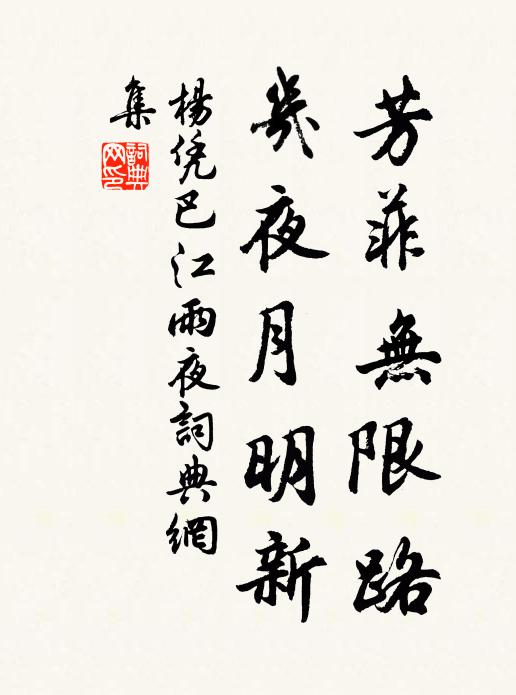 芳菲無限路
幾夜月明新
楊凭巴江雨夜詞典網
集
詞典
网印